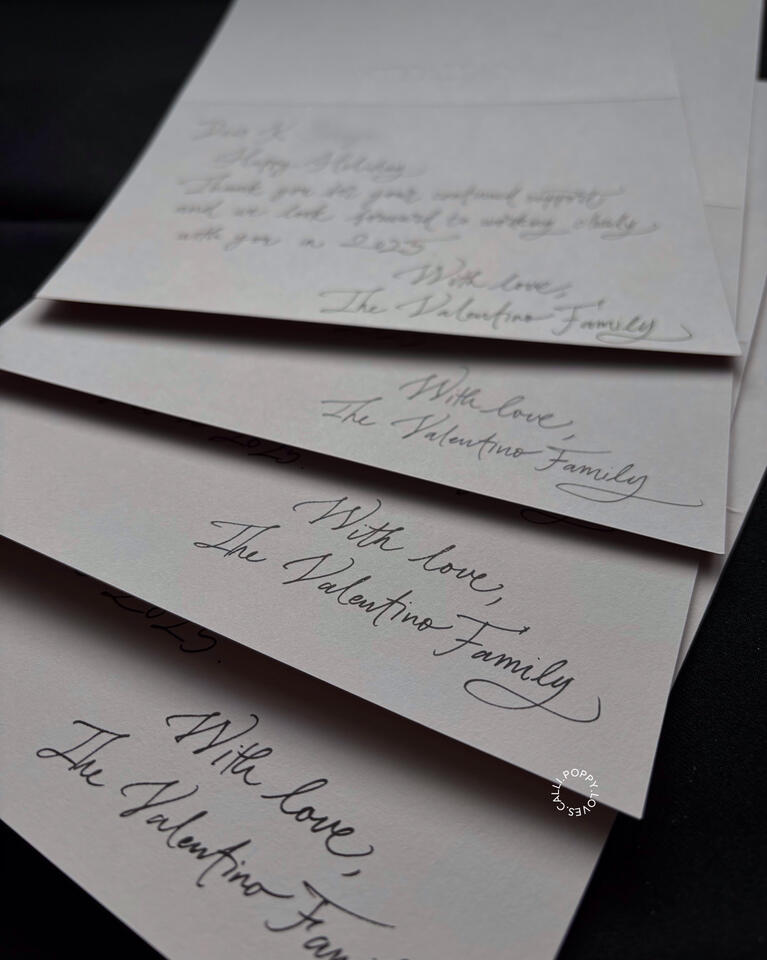 Dear K
Happy Holiday
Thank you for your continued support
and we look forward to working closely
with you in 2025
With love,
The Valentino Family
With love,
The Valentino Family
2025.
With love,
The Valentino Family
2025.
With love,
The Valentino Fam
CALLI.POPPY.LOVES.